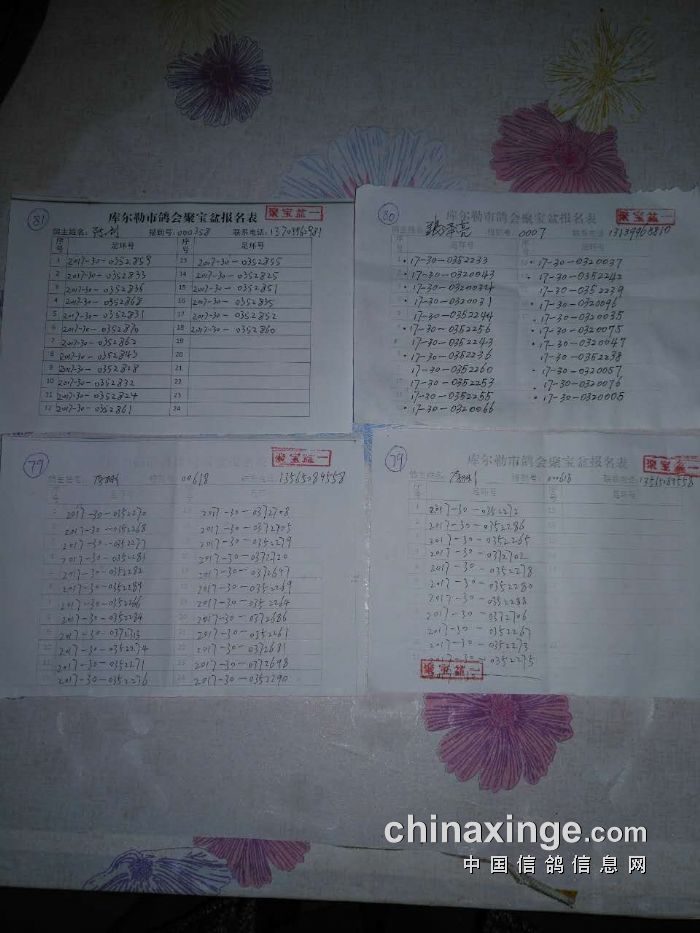 81
库尔勒市鸽会聚宝盆报名表
聚宝盆一
鸽主姓名： 报到号：000358 联系电话：
序号 足环号 序号 足环号
1 2017-30-0352859 13 2017-30-0352855
2 2017-30-0352833 14 2017-30-0352825
3 2017-30-0352836 15 2017-30-0352851
4 2017-30-0352868 16 2017-30-0352835
5 2017-30-0352831 17 2017-30-0352852
6 2017-30-0352870 18 2017-30-0352860
7 2017-30-0352862
8 2017-30-0352843 20
9 2017-30-0352828
10 2017-30-0352832 22
11 2017-30-0352824
12 2017-30-0352861 24
80
库尔勒市鸽会聚宝盆报名表
聚宝盆一
鸽主姓名： 报到号：0007 联系电话：
序号 足环号 序号 足环号
17-30-0352233 17-30-0320037
17-30-0320043 17-30-0352242
17-30-0320024 17-30-0352239
17-30-0320031 17-30-0320096
17-30-0352244 17-30-0320035
17-30-0352256 17-30-0320075
17-30-0352243 17-30-0320047
17-30-0352236 17-30-0352238
17-30-0352260 17-30-0320057
17-30-0352253 17-30-0320076
17-30-0352255 17-30-0320005
17-30-0320066
79
聚宝盆一
00618 13565089558
2017-30-0352270 2017-30-0372708
2017-30-0352268 2017-30-0372705
2017-30-0352277 2017-30-0352279
2017-30-0352283 2017-30-0372720
2017-30-0352282 2017-30-0372647
2017-30-0352289 2017-30-0352269
2017-30-0352266 2017-30-0352264
2017-30-0352284 2017-30-0372686
2017-30-0352261
2017-30-0352274 2017-30-0372681
2017-30-0352271 2017-30-0372698
2017-30-0352276 2017-30-0352290
79
库尔勒市鸽会聚宝盆报名表
聚宝盆一
00618 13565089558
足环号 足环号
2017-30-0352272
2017-30-0352286
2017-30-0352265
2017-30-0372702
2017-30-0352278
2017-30-0352280
2017-30-0352288
2017-30-0372706
2017-30-0352267
2017-30-0352273
2017-30-0352275
聚宝盆一
chinaxinge.com
中国信鸽信息网